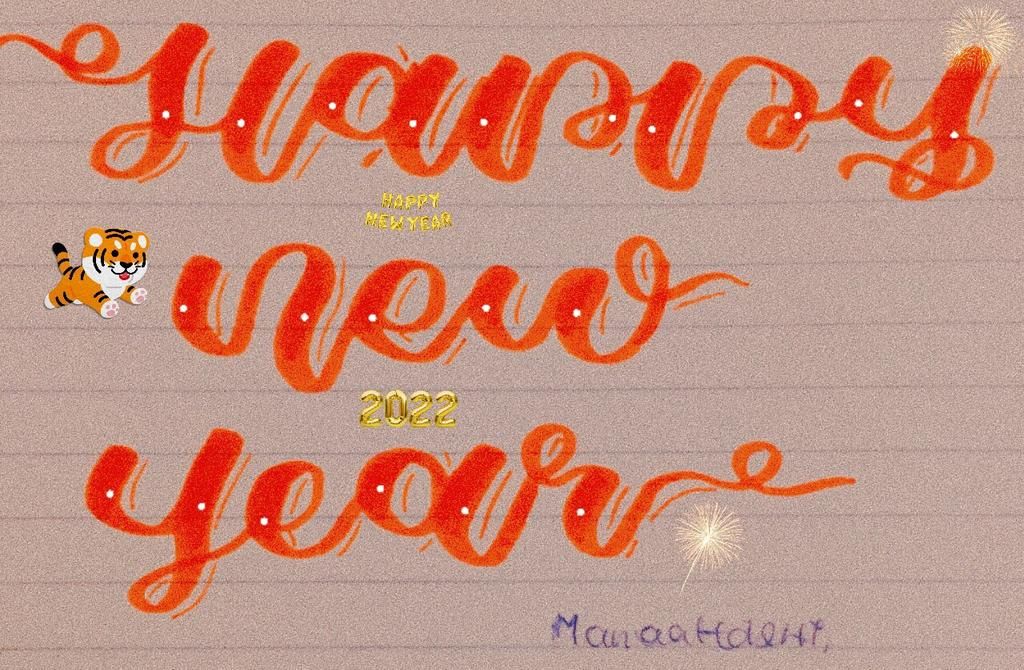 Happy
HAPPY
NEW YEAR
new
2022
year